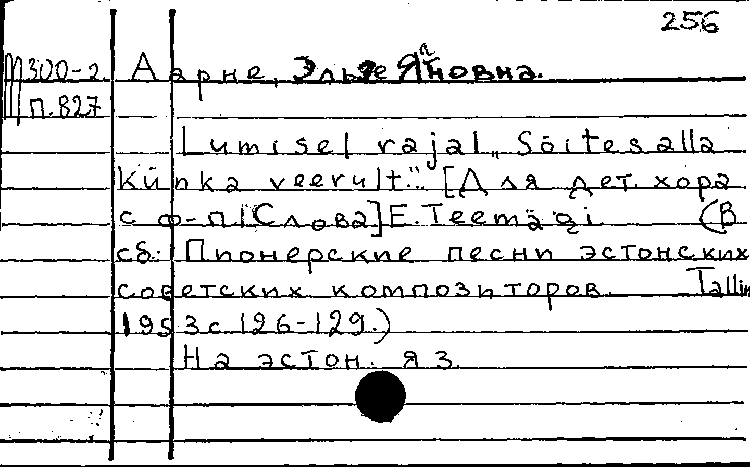 256
М300-2 Аарне, Эльзе Яновна.
П.827
Lumisel rajal „Sõites alla
künka veerult." [Для дет. хора
с ф-п] [Слова] E. Teemägi (В
сб: Пионерские песни эстонских
советских композиторов. Tallin
1953 с 126-129.)
На эстон. яз.